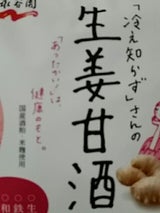 永谷園
「冷え知らず」さんの
生姜甘酒
「あったかい」は、
健康のもと。
国産酒粕・米麹使用